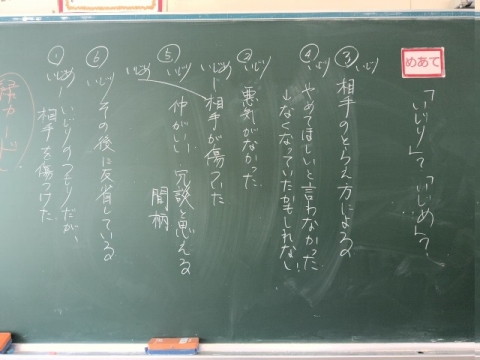 めあて
「いじり」？「いじめ」？
③いじり
相手のとらえ方によるの
④いじり
やめてほしいと言わなかった
しなくなっていたかもしれない
②いじり
悪気がなかった
いじめ
相手が傷ついた
⑤いじり
いじめ
仲がいい 冗談と思える
間柄
⑥いじり
その後に反省している
①いじめ
いじりのつもりだが、
相手を傷つけた